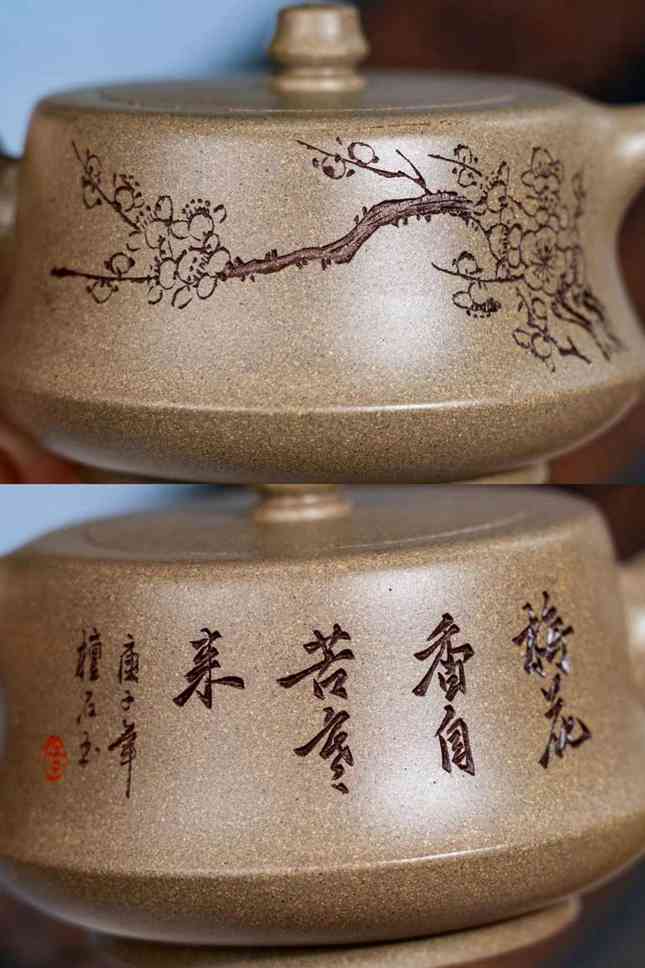 梅花
香自
苦寒
来
庚子年
檀石玉